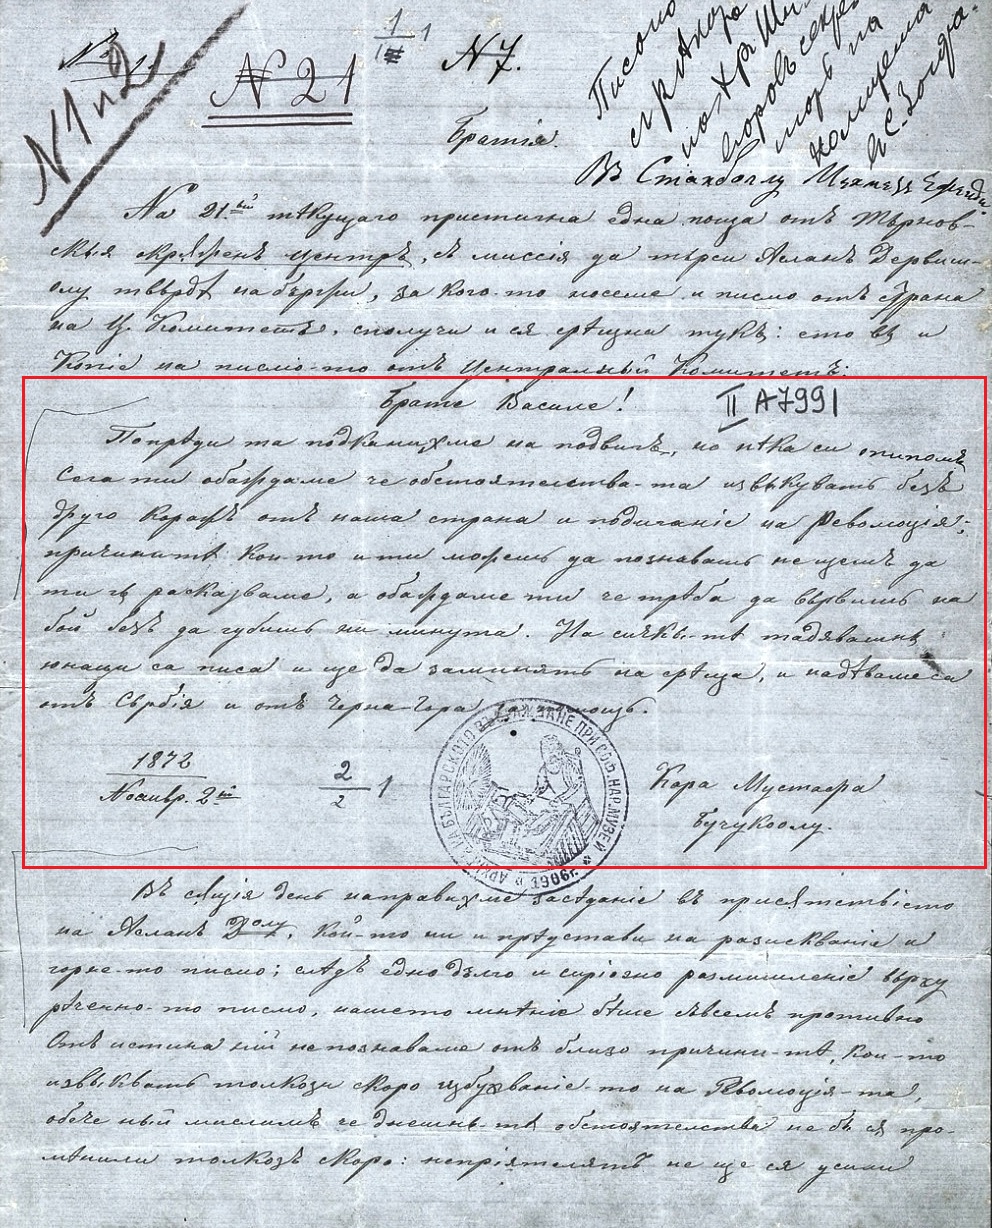 N 1 и 2
N 21
1/1 1
N 7.
Писмо
Братія.
Въ Станболу Мехмедъ Ефенди.
На 21.ый текущаго пристигна една поща отъ Търнов-
скыя окрѫженъ центръ, съ миссія да търси Асланъ Дервиш-
олу твърдѣ на бързѣ, за кого-то носеше и писмо отъ страна
на Ц. Комитетъ, сполучи и ся срѣщна тукъ: ето вы и
Копіе на писмо-то отъ Централный Комитетъ:
Брате Василе!
II А 7991
Попрѣди та подканихме на подвигъ, но нѣка си
Сега ти обаждаме че обстоятелства-та извыкувать безъ
друго Коражъ отъ наша страна и подиганіе на Революція;
причинитѣ кои-то и ти можешь да познавашь не щемъ да
ти гы расказваме, а обаждаме ти че трѣба да вървишъ на
бой безъ да губишь ни минута. На сичкы-тѣ тадявашны
юнаци са писа и ще да заминатъ на срѣща, и надѣваме са
отъ Сърбія и отъ Черна-Гора за помощь.
1872
Ноемвр. 2й
2/2 1
Кара Мустафа
Бучукоолу.
АРХИВА НА БЪЛГАРСКОТО ВЪЗРАЖДАНЕ ПРИ СОФ. НАР. МУЗЕЙ
1906г.
Въ сѫщія день направихме засѣданіе въ присѫтствіето
на Асланъ Д.олу, кой-то ни и прѣдстави на разискванія и
горне-то писмо; слѣдъ едно дълго и сиріозно размишленіе върху
рѣченно-то писмо, нашето мнѣніе бѣше съвсемъ противно
Отъ истина ній не познаваме отъ близо причини-тѣ, кои-то
извыквать толкози скоро избухваніе-то на Революція-та,
обаче ный мислимъ че днешнь-тѣ обстоятелства не бы ся про-
мѣнили толкозь скоро: непріятелятъ не ще ся усили